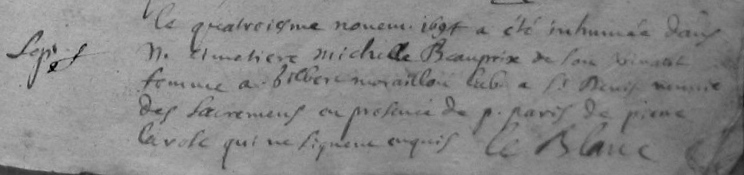 le quatroiesme novem. 1694 a été inhumée dans
Sep. N. cimetiere michelle Beauprix de son vivant
femme a Gilbert moraillon lab. a St Denis munie
des sacremens en presence de p. paris de pierre
larose qui ne signent enquis le Blanc